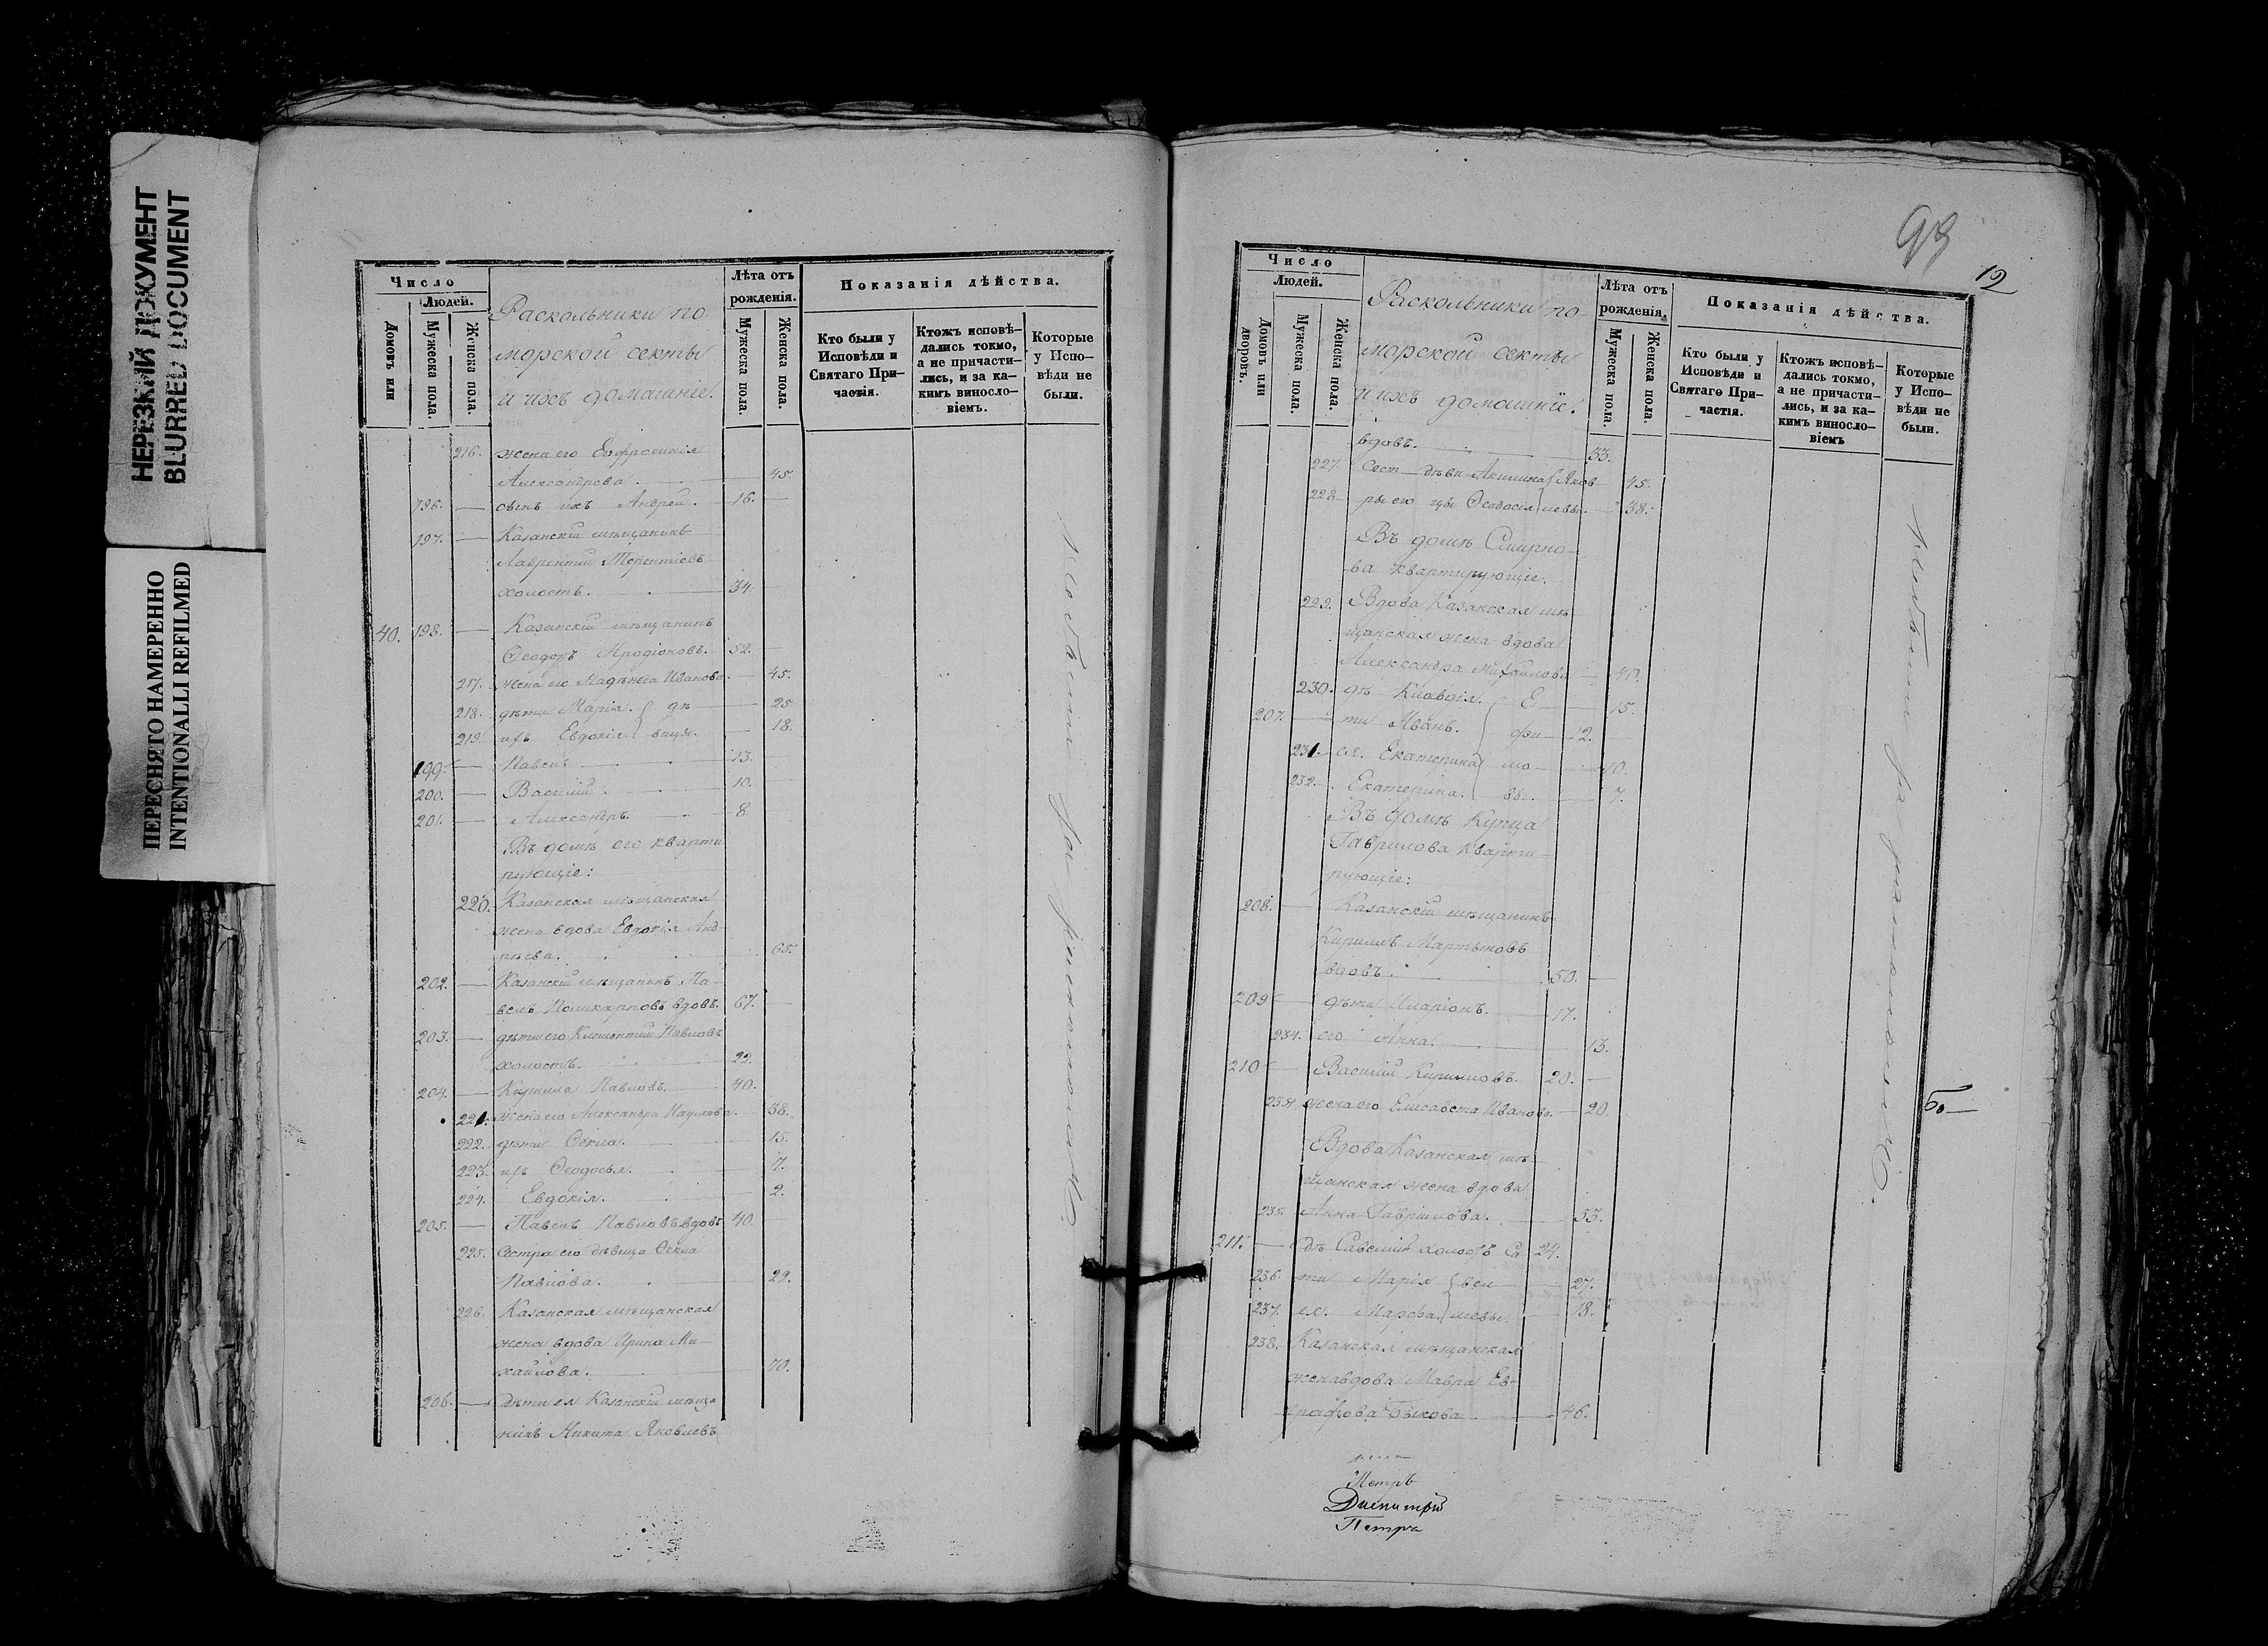 НЕРЕЗКИЙ ДОКУМЕНТ
BLURRED DOCUMENT
ПЕРЕСНЯТО НАМЕРЕННО
INTENTIONALLI REFILMED
Число
Людей.
Домовъ или
Мужеска пола.
Женска пола.
Раскольники по-
морской секты
и ихъ домашніе.
Лѣта отъ
рожденія.
Мужеска пола.
Женска пола.
Показанія дѣйства.
Кто были у
Исповѣди и
Святаго При-
частія.
Ктожъ исповѣ-
дались токмо,
а не причасти-
лись, и за ка-
кимъ винosло-
віемъ.
Которые
у Испо-
вѣди не
были.
216. жена его Евфросинія
Александрова. 45.
196. — сынъ ихъ Андрей. 16. —
197. — Казанскій мѣщанинъ
Лаврентій Терентіевъ
холостъ. 34.
40. 198. — Казанскій мѣщанинъ
Ѳеодоръ Иродіоновъ. 52. —
217. жена его Надежда Иванова. — 45.
218. дѣти Марія. дѣ — 25
219. ихъ Евдокія. вицы. — 18.
199. — Павелъ 13.
200. — Василій. 10.
201. — Александръ. 8.
Въ домѣ его кварти
рующіе:
220. Казанская мѣщанская
жена вдова Евдокія Анд-
рѣева. 65.
202. — Казанскій мѣщанинъ Па-
велъ Поликарповъ вдовъ. 67. —
203. — дѣти его Климентій Павловъ
холостъ. 22.
204. — Кирилла Павловъ. 40.
221. жена его Александра Наумова. — 38.
222. дѣти Ѳекла. 15.
223. ихъ Ѳеодосья. 7.
224. Евдокія. 2.
205. — Павелъ Павловъ вдовъ 40.
225. Сестра его дѣвица Ѳекла
Павлова. 29.
226. Казанская мѣщанская
жена вдова Ирина Ми-
хайлова. 70.
206. — дѣти ея Казанскій мѣща
нинъ Никита Яковлевъ
не были за расколомъ
93
12
Число
Людей.
Домовъ или
дворовъ.
Мужеска пола.
Женска пола.
Раскольники по-
морской секты
и ихъ домашніе.
Лѣта отъ
рожденія.
Мужеска пола.
Женска пола.
Показанія дѣйства.
Кто были у
Исповѣди и
Святаго При-
частія.
Ктожъ исповѣ-
дались токмо,
а не причасти-
лись, и за ка-
кимъ винosло-
віемъ
Которые
у Испо-
вѣди не
были.
вдовъ. 33.
227. Сест дѣви Акилина Яков- 45.
228. ры его цы Ѳеодосія левы. — 38.
Въ домѣ Смирно-
ва квартирующіе.
229. Вдова Казанская мѣ-
щанская жена вдова
Александра Михайлова — 40.
230. дѣ Клавдія. Е — 15.
207. — ти Иванъ. фи — 2. —
231. ея. Екатерина мо — 10.
232. Екатерина. вы. — 7.
Въ домѣ Купца
Гаврилова кварти-
рующіе:
208. — Казанскій мѣщанинъ
Кириллъ Мартыновъ
вдовъ. 50. —
209 — дѣти Иларіонъ. 17.
234. его Анна. 13.
210 — Василій Кирилловъ. 20. —
234 жена его Елисавета Иванова. — 20
Вдова Казанская мѣ-
щанская жена вдова
235. Анна Гаврилова. 53.
211. — дѣ Савелій холостъ Са 24.
236. ти Марія вел — 27.
237. ея. Марѳа. левы. — 18.
238. Казанская мѣщанская
жена вдова Мавра Ев-
графова Быкова. 46.
не были за расколомъ
бо—
Петръ
Димитрій
Петръ